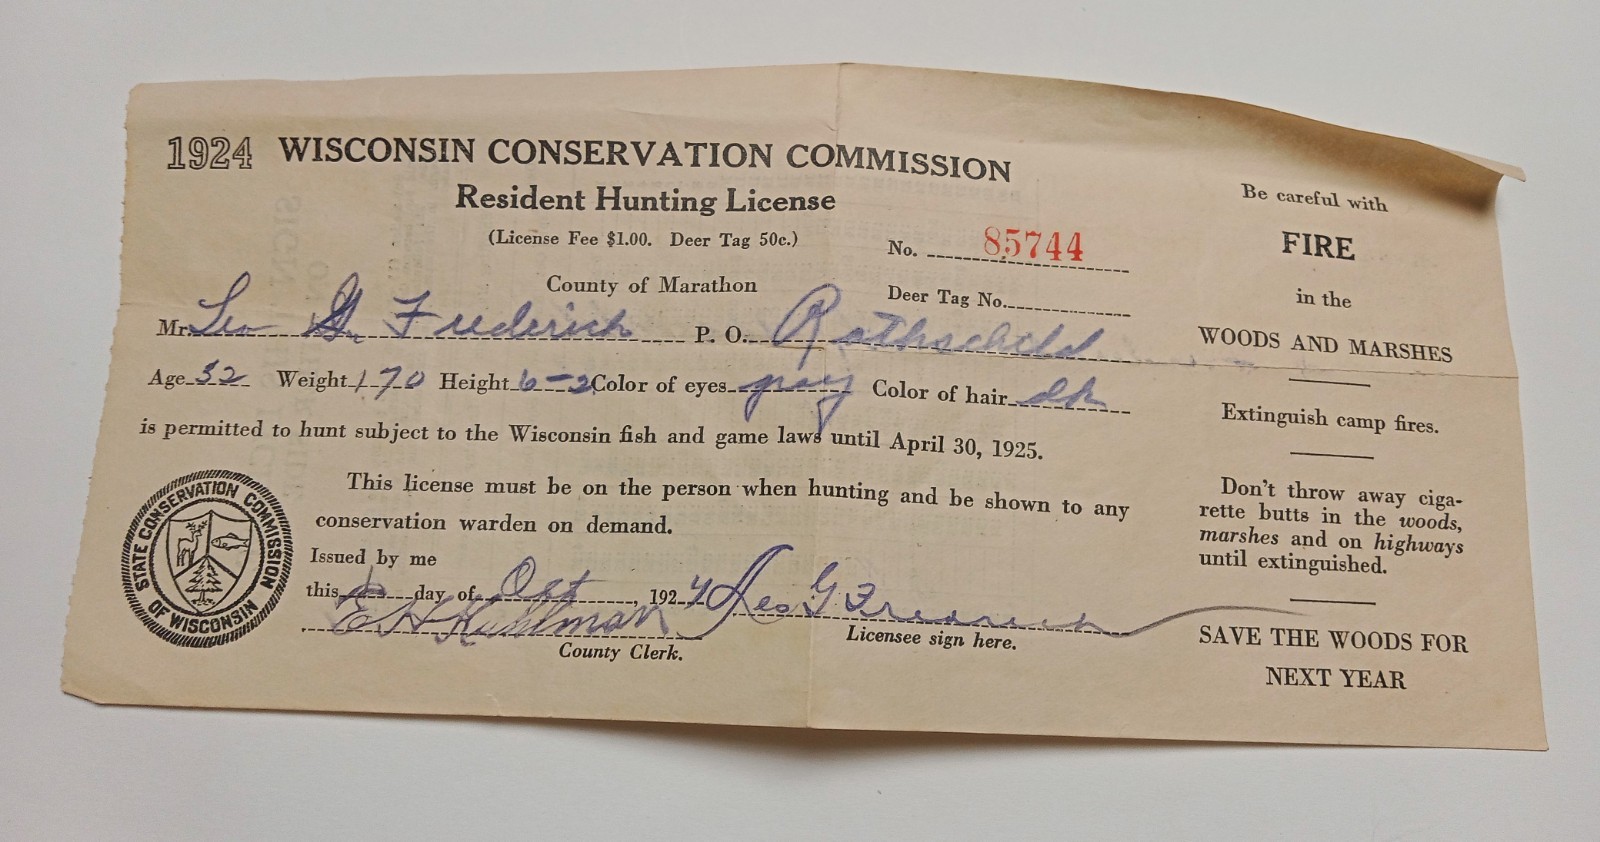 1924 WISCONSIN CONSERVATION COMMISSION
Resident Hunting License
(License Fee $1.00. Deer Tag 50c.)
No. 85744
County of Marathon
Deer Tag No.
Mr. Leo G. Frederich P. O. Rothschild
Age 32 Weight 170 Height 6-2 Color of eyes gray Color of hair dk
is permitted to hunt subject to the Wisconsin fish and game laws until April 30, 1925.
This license must be on the person when hunting and be shown to any
conservation warden on demand.
Issued by me
this day of Oct, 1924
E H Kuhlman
County Clerk.
Leo G Fredrich
Licensee sign here.
STATE CONSERVATION COMMISSION
OF WISCONSIN
Be careful with
FIRE
in the
WOODS AND MARSHES
Extinguish camp fires.
Don't throw away ciga-
rette butts in the woods,
marshes and on highways
until extinguished.
SAVE THE WOODS FOR
NEXT YEAR